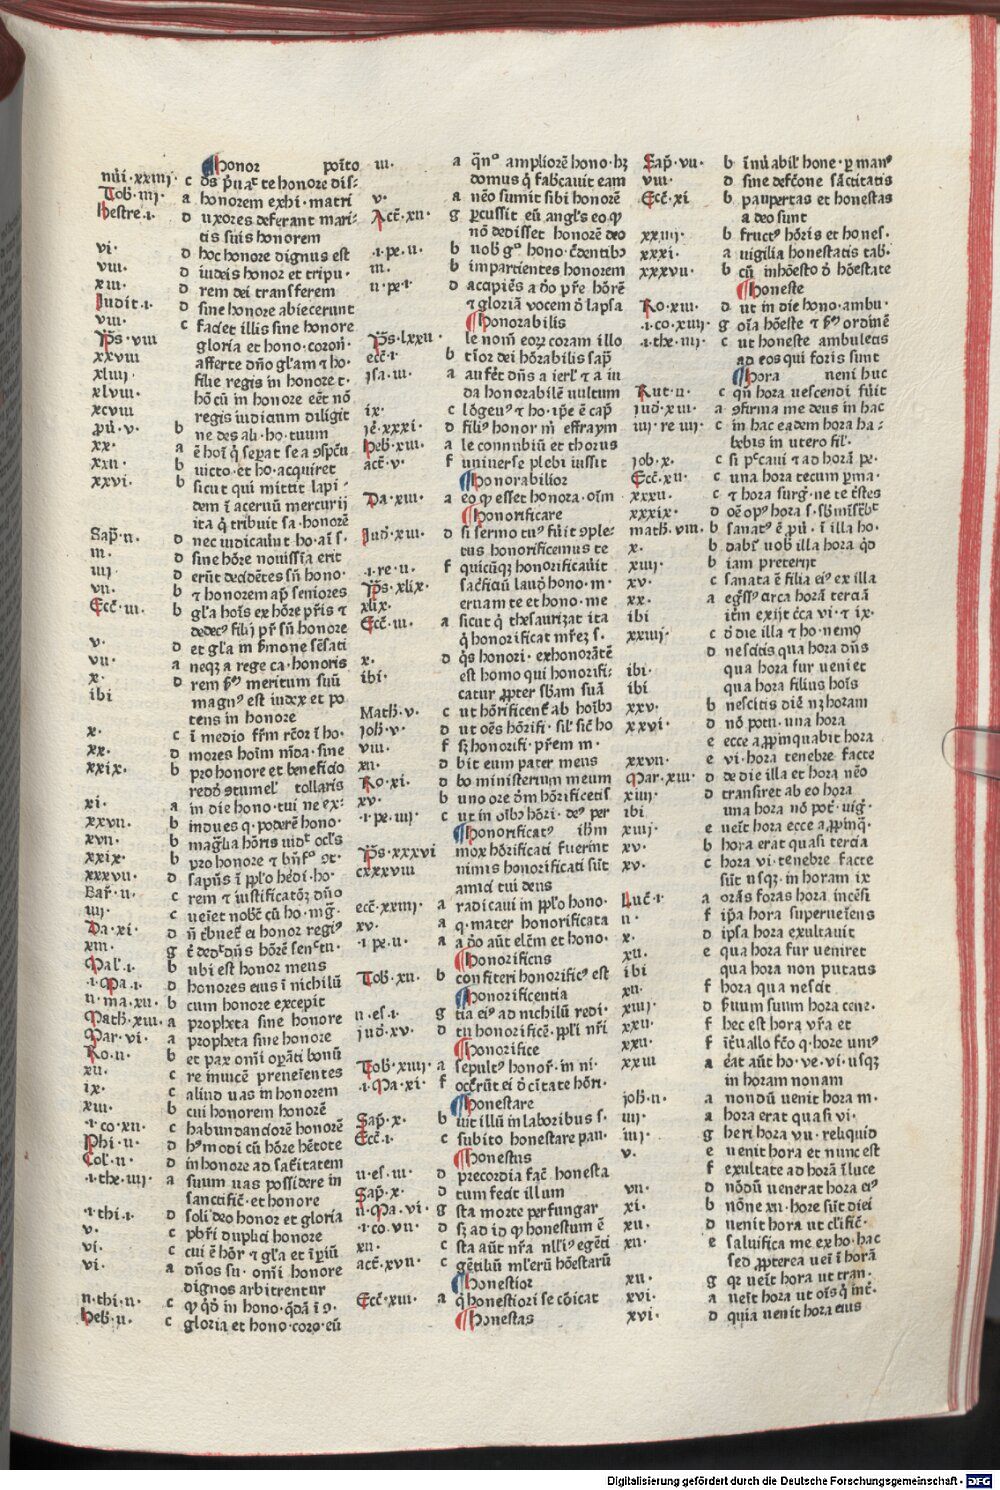 Honor poīto
nūi·xxiiij· c d̄s p̄uaᵗ te honore dis-
Tob·iiij· a honorem exhi·matri
Hestre·i· d uxores deferant mari-
tis suis honorem
vi· d hoc honore dignus est
viii· d iudeis honor et tripu·
xiii· d rem dei transferem
Judit·i· d sine honore abiecerunt
viii· c faciet illis sine honore
Ps·viii gloria et hono·coron̄·
xxviii afferte dn̄o gl̄am ⁊ ho·
xliiij· filie regis in honore t·
xlviii· hō cū in honore eēt nō
xcviii regis iudicium diligit
pū·v· b ne des ali·ho·tuum
xx· a
xxii· b uicto·et ho·acquiret
xxvi· b sicut qui mittit lapi-
dem ī aceruū mercurij
ita q̄ tribuit sa·honorē
Sap̄·ii· d nec iudicauūt ho·aī s·
iii· d sine hōre nouissīa erit
iiij d erūt decidētes sn̄ hono·
vii· b ⁊ honorem ap̄ seniores
Eccī·iii· b gl̄a hoīs ex hōre pr̄is ⁊
dedecꝰ filij pr̄ sn̄ honore
v· d et gl̄a in sermone sēsati
vii· a neqz a rege ca·honoris
x· d rem meritum suū
ibi magnꝰ est iudex et po
tens in honore
x· c ī medio fr̄m rc̄or ī ho·
xx· d mores hoīm nīda·sine
xxix· b pro honore et beneficio
tollaris
xi· a in die hono·tui ne ex-
xxvii· b indues q·poderē hono·
xvii· b
xxix· b pro honore ⁊
xxxvii· d sapn̄s ī pp̄lo hēdi·ho·
Bar̄·ii· c rem ⁊ iustificatōz dn̄o
iiij· c ueīet nobc̄ cū ho·mg̅·
Da·xi· d honor regiꝰ
xiii· g
Mal̄·i· b ubi est honor meus
·i·Ma·i· d honores eius ī nichilū
ii·ma·xii· b cum honore excepit
Math·xiii· a propheta sine honore
Mar·vi· a propheta sine honore
Ro·ii· b et pax omī opāti bonū
xii· c re inuicē preueīentes
ix· c aliud uas in honorem
xiii· b cui honorem honorē
·i·co·xii· c habundanciorē honorē
Phi·ii· d hꝰmodi cū hōre hētote
Col̄·ii· d in honore ad
·i·the·iiij· a suum uas possidere in
sanctific̄·et honore
·i·thi·i· d soli deo honor et gloria
v· c pb̄ri duplici honore
vi· c cui ē hōr ⁊ gl̄a et īpiū
vi· a dn̄os su·omī honore
dignos arbitrentur
ii·thi·ii· c
Heb·ii· c gloria et hono·coro·eū
iii· a ampliorē hono·hz
domus q̄ fabcauit eam
v· a nēo sumit sibi honorē
Acc̄·xii· g pcussit eū angl̄s eo q
nō dedisset honorē deo
·i·pe·ii· b uob̄ gº hono·c̄dentibꝰ
iii· b impartientes honorem
ii·pe·i· d acapiēs a d̄o pr̄e hōrē
⁊ gloriā vocem d̄ lapsa
Honorabilis
Ps·lxxii· le nomē eorz coram illo
ecc̄·i· b tior dei hōrabilis sap̄
Jsa·iii· a aufēt dn̄s a ierl̄ ⁊ a iu
da honorabilē uultum
ix· c lōgeuꝰ ⁊ ho·ip̄e ē cap̄
Jē·xxxi· d filiꝰ honor m̄ effraym
Heb̄·xiii· a le connubiū et thorus
act̄·v· f uniuerse plebi iussit
Honorabilior
Da·xiii· a eo q esset honora·oīm
Honorificare
Jud̄·xiii· d si sermo tuꝰ fūit ꝯple-
tus honorificemus te
·i·re·ii· f quicūqz honorificauit
Ps·xlix· sacficiū laud̄ hono·m·
xlix· eruam te et hono·me
Eccī·iii· a sicut q̄ thesaurizat ita
q̄ honorificat mr̄ez s·
x· d q̄s honori·exhonorātē
ibi· est homo qui honorifi-
catur ꝓpter sb̄am suā
Math·v· c ut hōrificenᵗ ab hoībꝰ
Joh·v· d ut oēs hōrifi·sil̄ sic̄ ho
viii· f sz honorifi·pr̄em m·
xii· d bit eum pater meus
Ro·xi· d bo ministerium meum
xv· b uno ore d̄m hōrificetis
·i·pe·iiij· c ut in oībꝰ hōri·deꝰ per
Honorificatꝰ ibm̄
Ps·xxxvi mox hōrificati fuerint
cxxxviii nimis honorificati sūt
amici tui deus
ecc̄·xxiiij· a radicaui in pp̄lo hono·
xv· a q·mater honorificata
·i·pe·ii· a a d̄o aūt elc̄m et hono·
Honorificus
Tob·xii· b confiteri honorificꝰ est
Honorificentia
ii·es·i· g tia eiꝰ ad nichilū redi·
Jud·xv· d tu honorificē·pp̄li nr̄i
Honorifice
Tob·xiiij· a sepultꝰ honor̄·in ni·
·i·Ma·xi· f occr̄rūt ei d̄ c̄itate hōri·
Honestare
Sap̄·x· b uit illū in laboribus s·
Eccī·i· c subito honestare pau·
Honestus
ii·es·iii· d precordia fac̄ honesta
Sap̄·x· d tum fecit illum
ii·Ma·vi· g sta morte perfungar
·i·co·vii· d sz ad id q honestum ē
xii· c sta aūt nr̄a nll̄iꝰ egēti
act̄·xvii· c gētiliū ml̄erū hōestarū
Honestior
Eccī·xiii· a q̄ honestiori se cōicat
Honestas
Sap̄·vii· b īnūabil̄ hone·p manꝰ
viii· d sine defc̄one sāctitatis
Eccī·xi b paupertas et honestas
a deo sunt
xxiiij· b fructꝰ hōris et hones·
xxxi· a uigilia honestatis tab·
xxxvii· b cū inhōesto d̄ hōestate
Honeste
Ro·xiii· d ut in die hono·ambu·
·i·co·xiiij· g oīa hōeste ⁊ ordinē
·i·the·iiij· c ut honeste ambuletis
ad eos qui foris sunt
Hora neni huc
Rut·ii· c qn̄ hora uescendi fūit
Jud̄·xiii· c ꝯfirma me deus in hac
iiij·re·iiij· c in hac eadem hora ha-
bebis in utero fil̄·
Job·x· c si pᵉcaui ⁊ ad horā pe·
Eccī·xii· c una hora tecum pma·
xxxii· c ⁊ hora surg̅·ne te c̄stes
xxxix· d
math·viii· b sanatꝰ ē pū·ī illa ho·
x· b dabiᵗ uob̄ illa hora q̄d
xiiij· b iam preterijt
xv· c sanata ē filia eiꝰ ex illa
xx· a egss̄ꝰ circa horā terciā
ibi itēm exijt c̄ca vi·⁊ ix·
xxiiij· c d̄ die illa ⁊ ho·nemo
d nescitis qua hora dn̄s
ibi· qua hora fur ueniet
ibi qua hora filius hoīs
xxv· b nescitis diē nz horam
xxvi· d nō potu·una hora
e ecce appinquabit hora
xxvii· e vi·hora tenebre facte
Mar·xiii· d de die illa et hora nēo
xiiij· d transiret ab eo hora
ibi una hora nō pot̄·uig̅·
xiiij· e ueīt hora ecce appinq̄·
xv· b hora erat quasi tercia
xv· c hora vi·tenebre facte
sūt usqz·in horam ix
Luc̄·i· a orās foras hora incēsi
ii· f ip̄a hora superueīens
x· d ipsa hora exultauit
xii· e qua hora fur ueniret
ibi qua hora non putatis
xii· f hora qua nescit
xiiij· d seruum suum hora cene·
xxii· f hec est hora vr̄a et
xxii· f ītūallo fc̄o q·hore uniꝰ
xxiii a ēat aūt ho·ve·vi·usqz
in horam nonam
Joh·ii· a nondū uenit hora m·
iiij· a hora erat quasi vi·
iiij· g heri hora vii·reliquid
v· e uenit hora et nunc est
f exultate ad horā ī luce
vii· d nōdū uenerat hora eiꝰ
xi· b nōne xii·hore sūt diei
xii· d uenit hora ut clific̄·
xii· e saluifica me ex ho·hac
sed ꝓpterea ueī ī horā
xii· g qr ueīt hora ut tran·
xvi· a ueīt hora ut oīs q̄ int̄·
xvi· d quia uenit hora eius
Digitalisierung gefördert durch die Deutsche Forschungsgemeinschaft - DFG